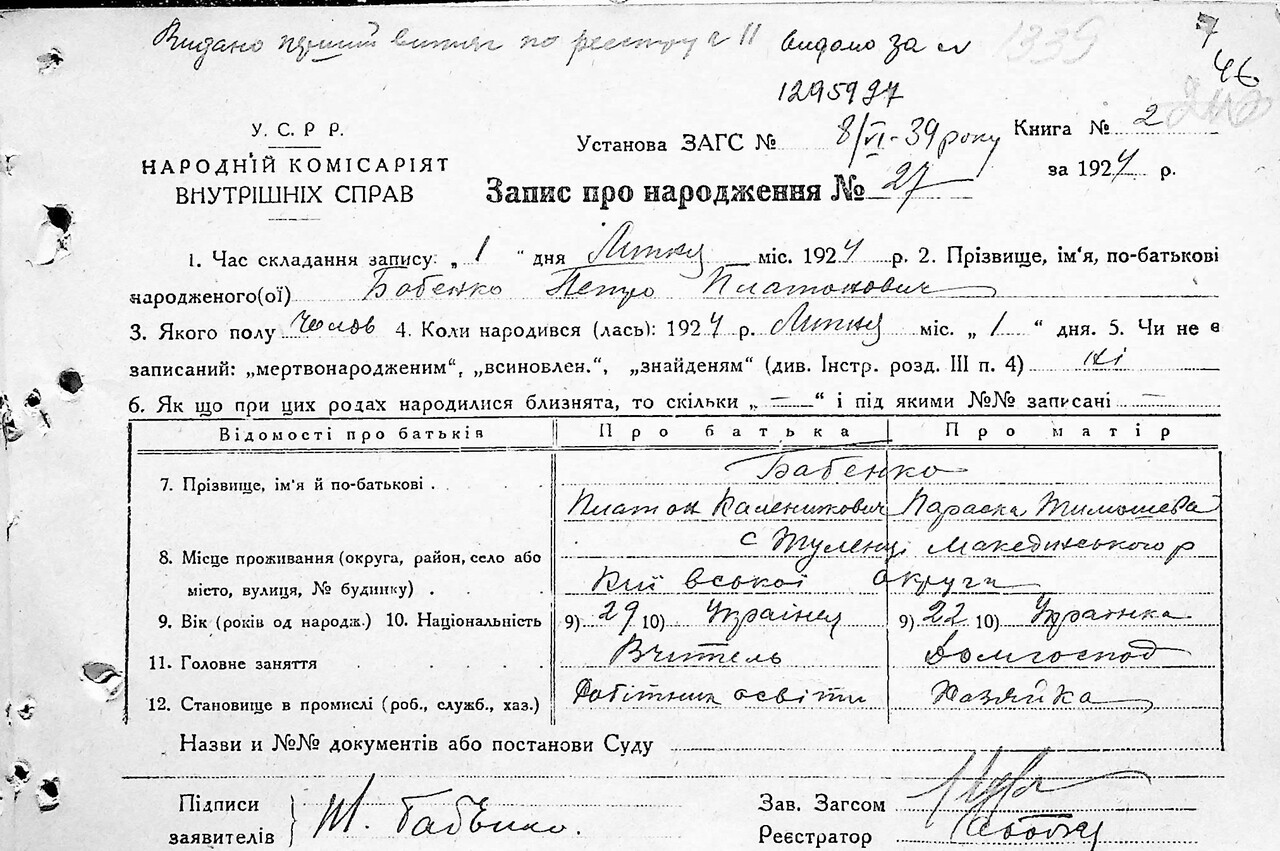 Видано перший витяг по реєстру г 11 видано за №
1339
7
46
1295997
8/VI-39 року
У. С. Р Р.
НАРОДНІЙ КОМІСАРІЯТ
ВНУТРІШНІХ СПРАВ
Установа ЗАГС №
Книга № 2
за 1924 р.
Запис про народження № 27
1. Час складання запису: „ 1 “ дня Липня міс. 1924 р. 2. Прізвище, ім'я, по-батькові
народженого(ої) Бабенко Петро Платонович
3. Якого полу Чолов 4. Коли народився (лась): 1924 р. Липня міс. „ 1 “ дня. 5. Чи не є
записаний: „мертвонародженим“, „всиновлен.“, „знайденям“ (див. Інстр. розд. III п. 4) ні
6. Як що при цих родах народилися близнята, то скільки „ — “ і під якими №№ записані —
Відомості про батьків Про батька Про матір
7. Прізвище, ім'я й по-батькові . Бабенко
Платон Каленикович Параска Тимошева
8. Місце проживання (округа, район, село або с Тулинці Македонського р
місто, вулиця, № будинку) . Київської округи
9. Вік (років од народж.) 10. Національність 9) 29 10) Українец 9) 22 10) Українка
11. Головне заняття Вчитель Домгоспод
12. Становище в промислі (роб., служб., хаз.) Робітник освіти Хазяйка
Назви и №№ документів або постанови Суду
Підписи
заявителів } П. Бабенко.
Зав. Загсом
Реєстратор